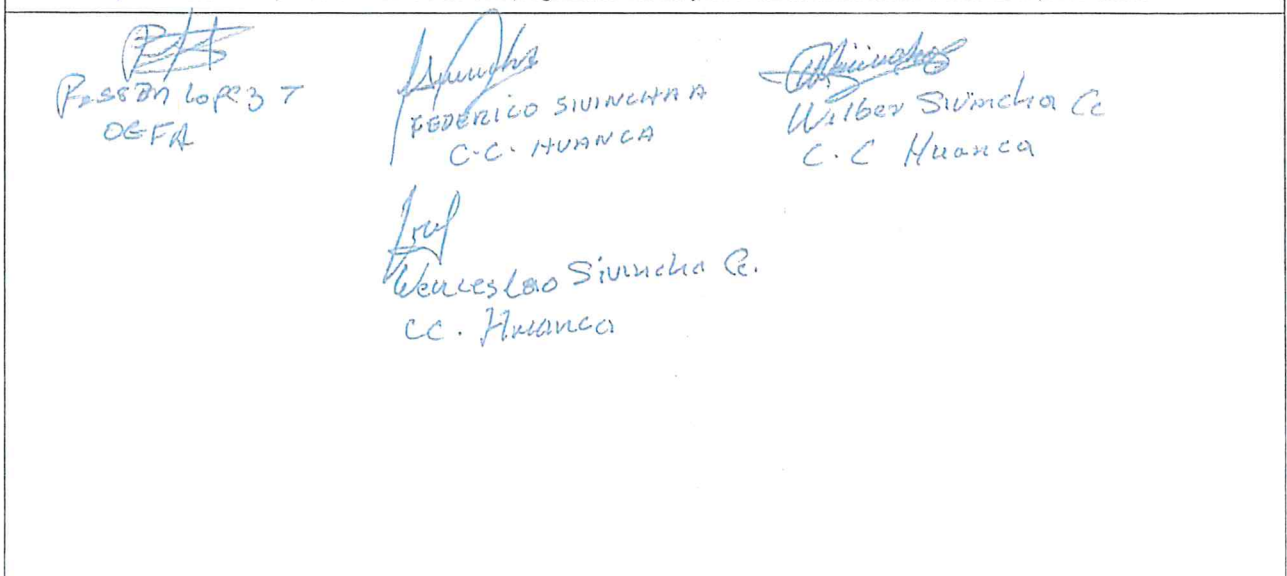 Lopez T
OEFA
FEDERICO SIVINCHA A
C.C. HUANCA
Wilber Sivincha Cc
C.C Huanca
Wenceslao Sivincha Cc.
CC. Huanca